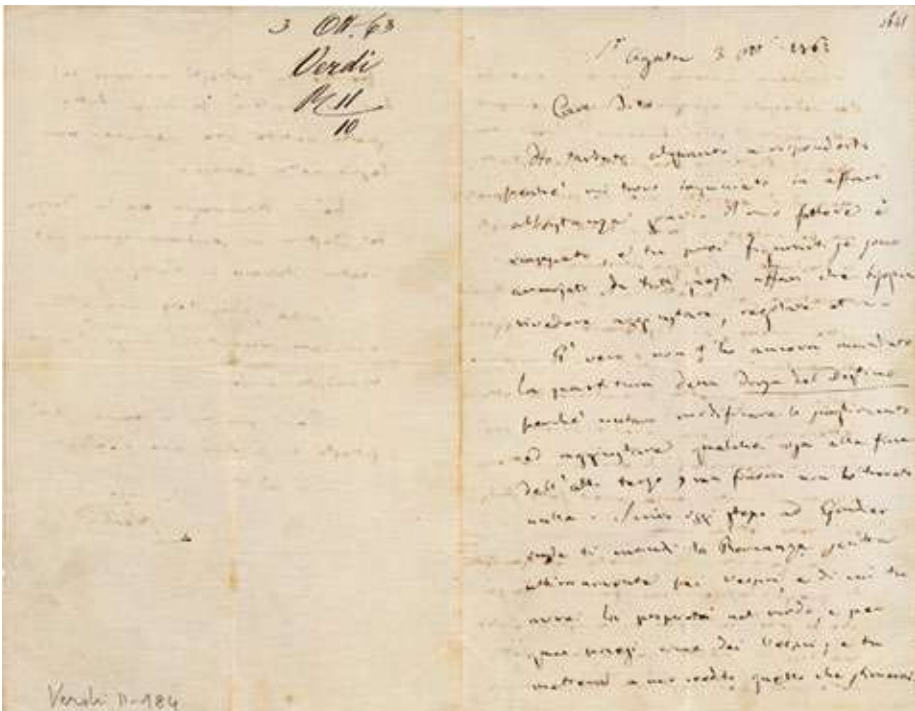 3 Ott. 63
Verdi
R 11
10
Verdi n-984
1641
St Agata 3 Ott 1863
Caro Tito
Ho tardato alquanto a risponderti
perché mi trovo in affari
abbastanza gravi. Il mio fattore è
scappato, e tu puoi figurarti se sono
da tutti questi affari che bisogna
rivedere aggiustare, regolare et
È vero: non t'ho ancora mandato
la partitura della Forza del Destino
perché volevo modificare lo scioglimento
ed aggiustare qualche cosa alla fine
dell'atto terzo, ma finora non ho trovato
nulla. Scrivo oggi stesso ad
onde ti mandi la Romanza scritta
ultimamente pei Vespri, e di cui tu
avrai la proprietà nel modo, e per
dei Vespri, e tu
metterai a mio credito quello che